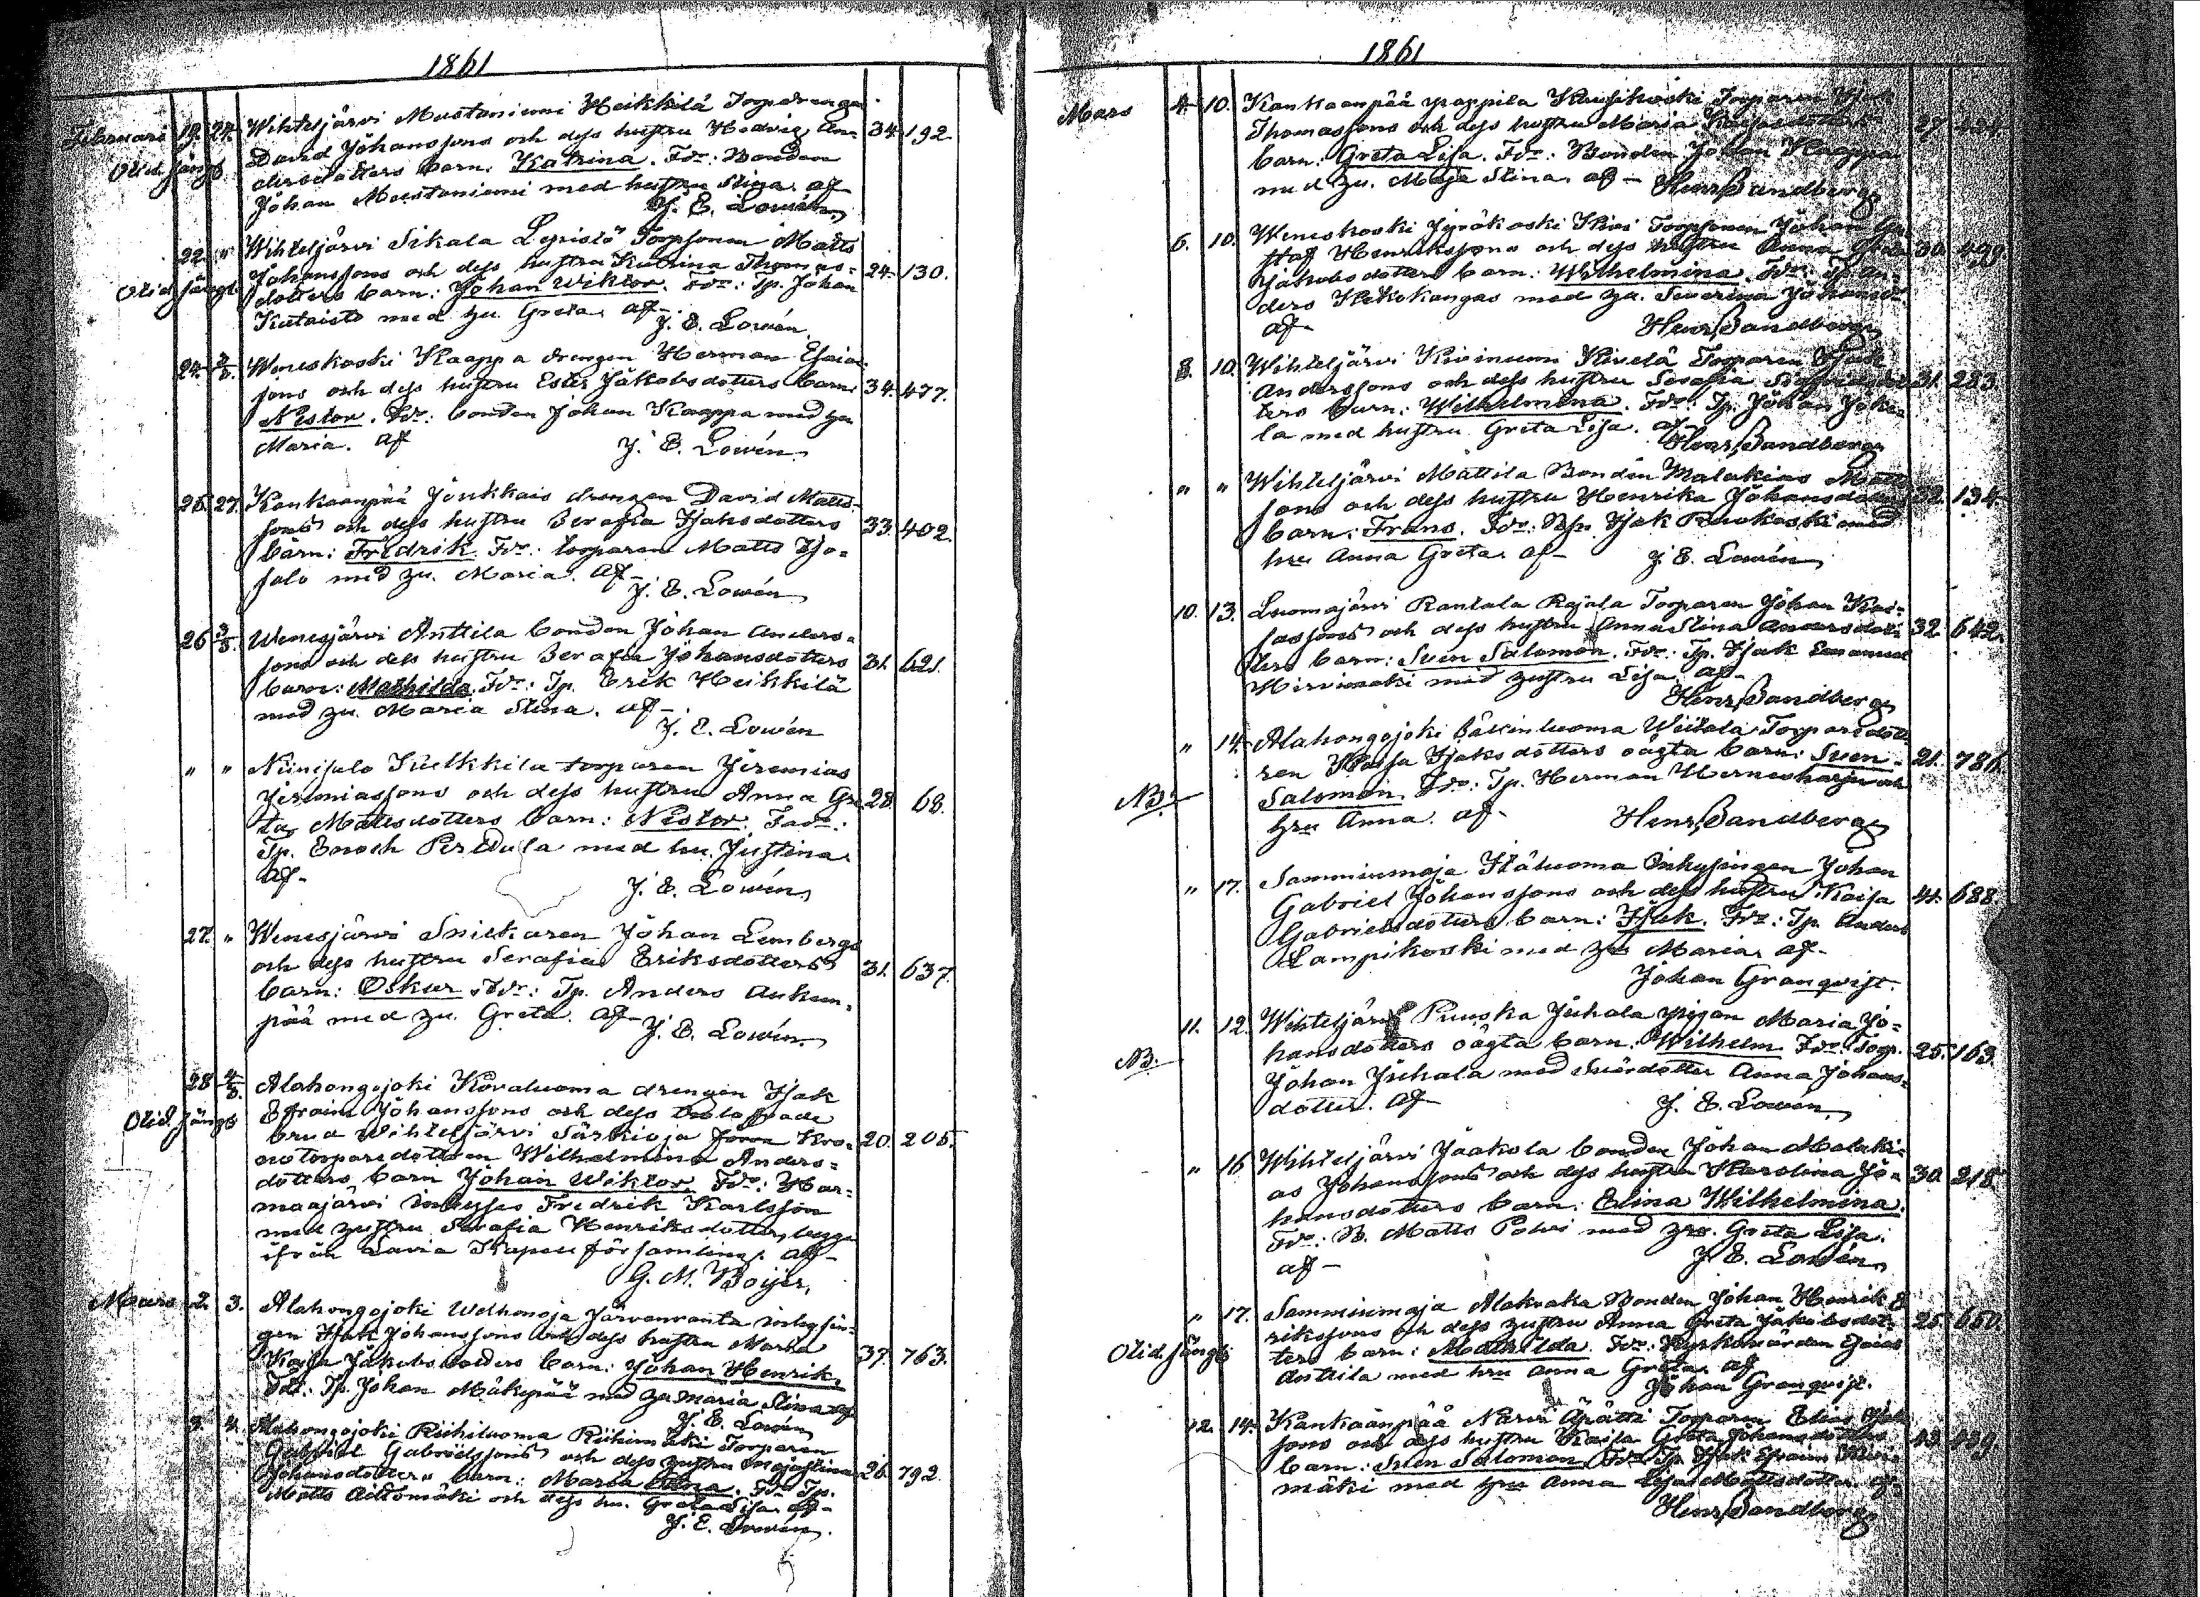 1861
Februari 19. 24. Wihteljärvi Mustaniemi Heikkilä Torpdrengen
David Johanssons och dess hustru Hedvig An- 34. 192.
Olid. Jängb dersdotters barn: Katrina. Fdr: Bonden
Johan Mustaniemi med hustru Stina. af
J. E. Lowén
22. " Wihteljärvi Sikala Lepistö Torpsonen Matts
Johanssons och dess hustru Katrina Thomas- 24. 130.
Olid. Jängb dotters barn: Johan Wiktor. Fdr: Tp. Johan
Kutaisto med hu. Greta. af-
J. E. Lowén
24. 2/3. Weneskoski Kaappa drengen Herman Esaias-
sons och dess hustru Ester Jakobsdotters barn: 34. 477.
Nestor. Fdr: bonden Johan Kaappa med hu
Maria. af J. E. Lowén
25. 27. Kankaanpää Jönkkais drengen David Matts-
sons och dess hustru Serafia Isaksdotters 33. 402.
barn: Fredrik. Fdr: torparen Matts Iso-
salo med hu. Maria. af-
J. E. Lowén
26. 3/3. Wenesjärvi Anttila bonden Johan Anders-
sons och dess hustru Serafia Johansdotters 31. 621.
barn: Mathilda. Fdr: Tp. Erik Heikkilä
med hu. Maria Stina. af-
J. E. Lowén
" " Niinisalo Kielkkila torparen Jeremias
Jeremiassons och dess hustru Anna Gre- 28. 68.
ta Mattsdotters barn: Nestor. Fadr:
Tp. Enoch Peridula med hu. Justina
af- J. E. Lowén
27. " Wenesjärvi Snickaren Johan Lembergs
och dess hustru Serafia Eriksdotters 31. 637.
barn: Oskar. Fdr: Tp. Anders Aukun-
pää med hu. Greta. af- J. E. Lowén
28. 4/3. Alahongojoki Kovaluoma drengen Isak
Efraim Johanssons och dess trolofvade
Olid. Jängb brud Wihteljärvi Särkioja Kro- 20. 205.
notorparedottren Wilhelmina Anders-
dotters barn Johan Wiktor. Fdr: Har-
maajärvi Inhyses Fredrik Karlsson
med hustru Serafia Henriksdotter, begge
ifrån Lavia Kapellförsamling. af-
G. M. Boijer.
Mars 2. 3. Alahongojoki Welhonoja Järvenranta inhysin-
gen Isak Johanssons och dess hustru Maria
Kajsa Jakobsdotters barn: Johan Henrik. 37. 763.
Fdr: Tp. Johan Mäkipää med hu Maria Stina af
J. E. Lowén
3. 4. Alahongojoki Riihiluoma Riihimäki Torparen
Gabriel Gabrielssons och dess hustru Majastina
Johansdotters barn: Maria Stina. Fdr Tp. 26. 792.
Matts Aittomäki och dess hu. Greta Lisa. af-
J. E. Lowén.
1861
Mars 4. 10. Kankaanpää Pappila Kuusikoski Torparen Isak
Thomassons och dess hustru Maria Kaisasdotters 27.
barn: Greta Lisa. Fdr: Bonden Johan Kaappa
med hu. Maja Stina. af- Henr. Sandberg
6. 10. Weneskoski Jyräkoski Torpsonen Johan Gu-
staf Henrikssons och dess hustru Anna Greta 30. 499.
Jakobsdotters barn: Wilhelmina. Fdr: Tp. An-
ders Hietokangas med hu. Severina Johansdr
af- Henr. Sandberg
8. 10. Wihteljärvi Kiviniemi Kivelä Torparen Isak
Anderssons och dess hustru Serafia Sigfridsdot- 31. 283.
ters barn: Wilhelmina. Fdr: Tp. Johan Joke-
la med hustru Greta Lisa. af-
Henr. Sandberg
" " Wihteljärvi Mattila Bonden Malakias Matts-
sons och dess hustru Henrika Johansdotters 32. 134.
barn: Frans. Fdr: Bn. Isak Ruokoski med
hru Anna Greta. af- J. E. Lowén
10. 13. Luomajärvi Rantala Rajala Torparen Johan Kai-
sassons och dess hustru Anna Stina Andersdot- 32. 642.
ters barn: Sven Salomon. Fdr: Tp. Isak Emanuel
Hirvimäki med hustru Lisa. af-
Henr. Sandberg
" 14. Alahongojoki Wiitala Torparedott-
ren Kaisa Isaksdotters oägta barn: Sven 21. 786.
NB. Salomon. Fdr: Tp. Herman Herneskarju och
hru Anna. af- Henr. Sandberg
" 17. Sammiumaja Itäluoma Inhysingen Johan
Gabriel Johanssons och dess hustru Kaisa 44. 688.
Gabrielsdotters barn: Isak. Fdr: Tp. Anders
Lampikoski med hu Maria. af-
Johan Granqvist.
11. 12. Wihteljärvi Ruuska Juhala pigan Maria Jo-
hansdotters oägta barn: Wilhelm. Fdr: Torp. 25. 163.
NB. Johan Juhala med Svärdotter Anna Johans-
dotter. af J. E. Lowén
" 16 Wihteljärvi Jaakola bonden Johan Malaki-
as Johanssons och dess hustru Karolina Jo- 30. 218.
hansdotters barn: Elina Wilhelmina.
Fdr: B. Matts Polvi med hru. Greta Lisa.
af- J. E. Lowén
" 17. Sammiumaja Alakraka Bonden Johan Henrik E-
rikssons och dess hustru Anna Greta Jakobsdot- 25. 660.
Olid. Jängb ters barn: Mathilda. Fdr: Kyrkovärden Esaias
Anttila med hru Anna Greta. af
Johan Granqvist.
12. 14. Kankaanpää Narvi Äpätti Torparen Elias Isak-
sons och dess hustru Kaisa Greta Johansdotters 43. 439.
barn: Sven Salomon. Fdr Tp. Isak Efraim
mäki med hru Anna Lisa Mattsdotter. af-
Henr. Sandberg